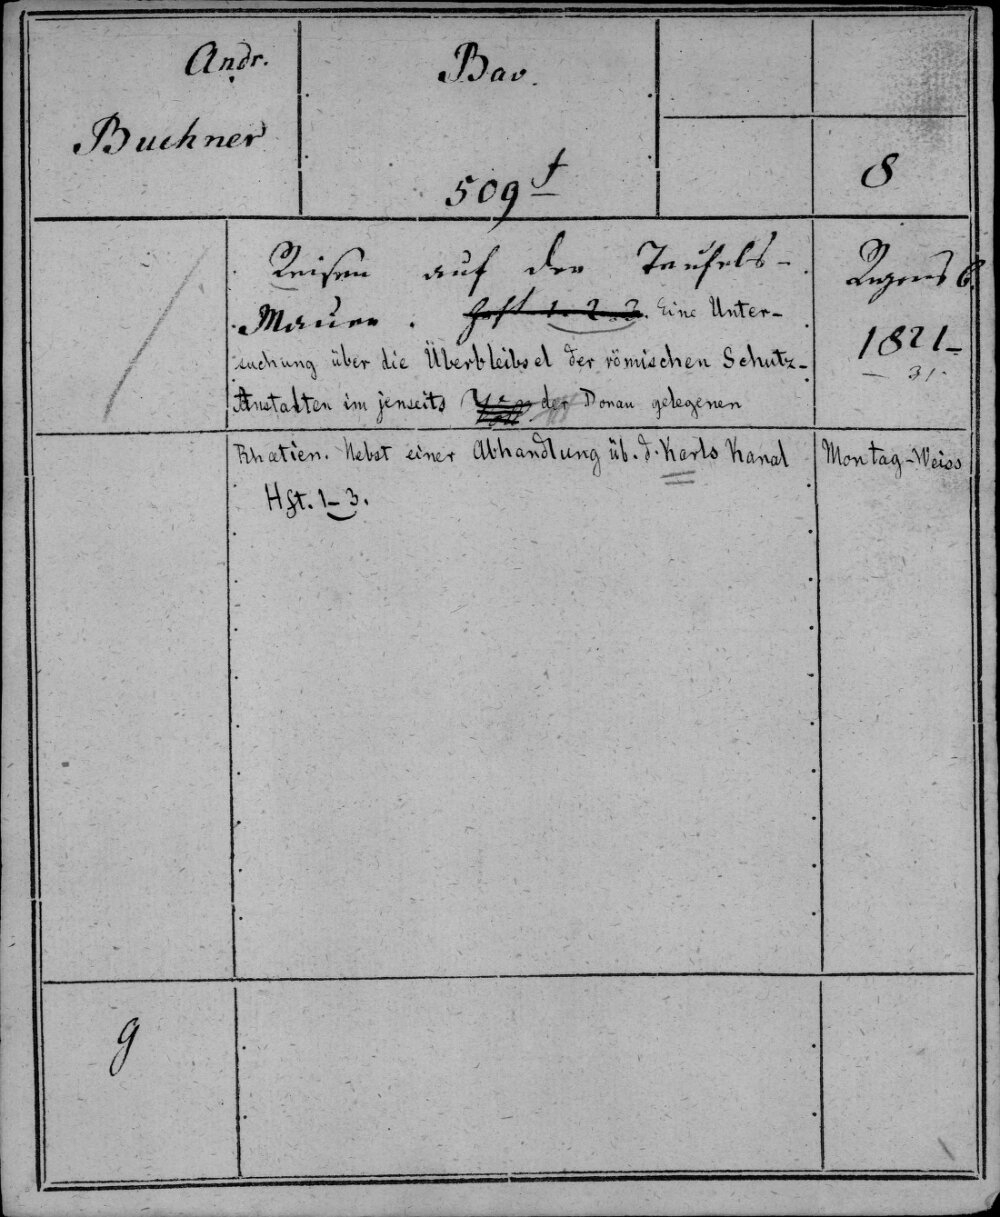 Andr.
Buchner
Bav.
509 t
8
Reisen auf der Teufels-
Mauer. Heft 1. 2. 3. Eine Unter-
suchung über die Überbleibsel der römischen Schutz-
Anstalten im jenseits der Donau gelegenen
Rhætien. Nebst einer Abhandlung üb. d. Karls Kanal
Hft. 1-3.
Regensb.
1821-
31.
Montag-Weiss
g